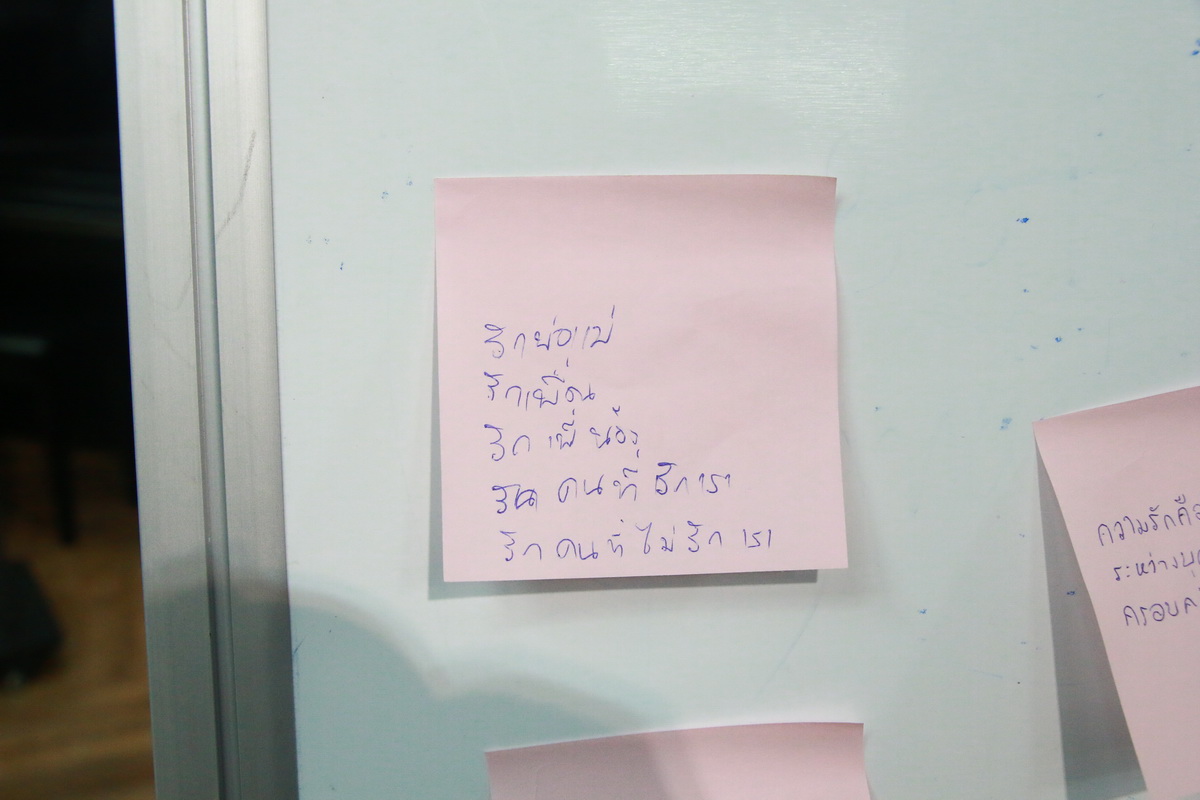 รักพ่อแม่
รักเพื่อน
รัก เพื่อน
รัก คนที่ รักเรา
รัก คนที่ ไม่ รัก เรา
ความรักคือ
ระหว่าง